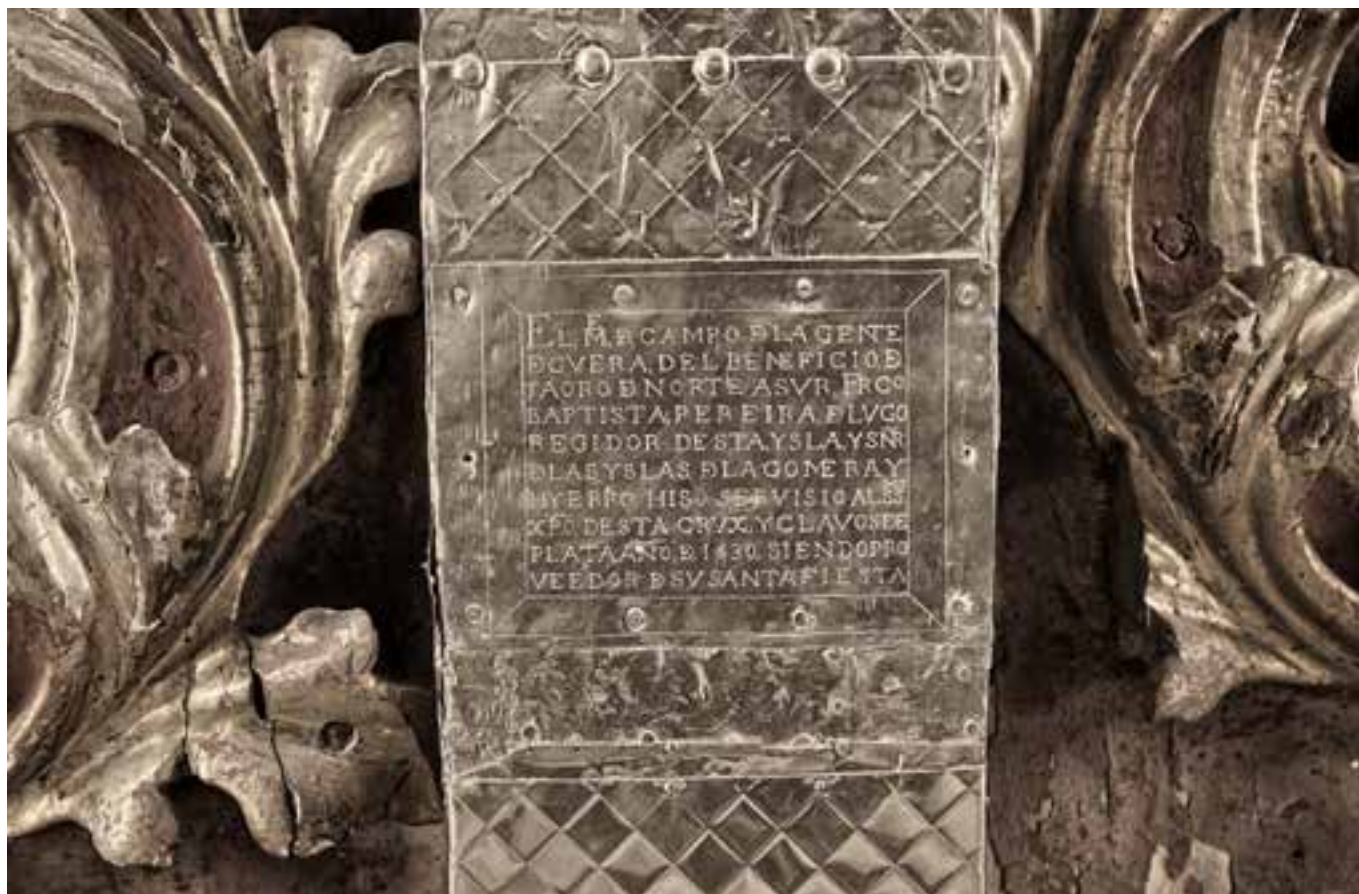 EL M.E CAMPO Đ LA GENTE
Đ GVERA, DEL BENEFICIO, Đ
TAORO Đ NORTE A SVR, FRCO
BAPTISTA, PEREIRA, Đ LVGO
REGIDOR DESTA YSLA Y SÑR
Đ LAS YSLAS Đ LA GOMERA Y
HYERRO HISO SERVISIO AL
XPO DESTA CRVX, Y CLAVOS DE
PLATA AÑO, Đ 1630, SIENDO PRO
VEEDOR Đ SV SANTA FIESTA